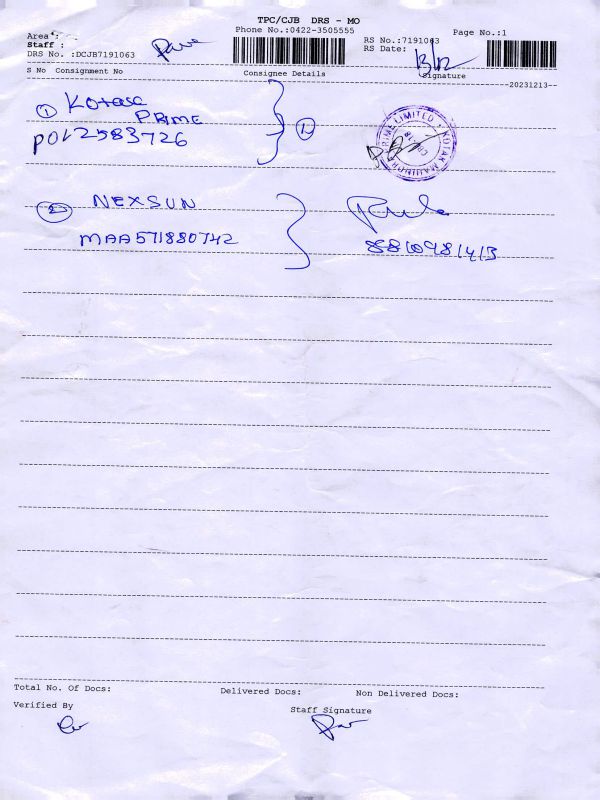 TPC/CJB DRS - MO
Phone No.:0422-3505555
Page No.:1
Area :
Staff :
DRS No. :DCJB7191063
RS No.:7191063
RS Date:
13/12
Signature
S No Consignment No
Consignee Details
20231213
1 Kotak
PRIME
POL2583726
1
PRIME LIMITED * KOTAK MAHINDRA
CBE-18
2 NEXSUN
MAA571880742
8810981413
Total No. Of Docs:
Delivered Docs:
Non Delivered Docs:
Verified By
Staff Signature